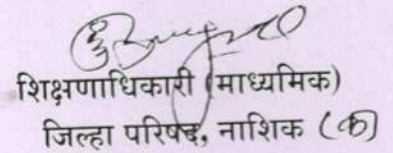 शिक्षणाधिकारी (माध्यमिक)
जिल्हा परिषद, नाशिक (क)